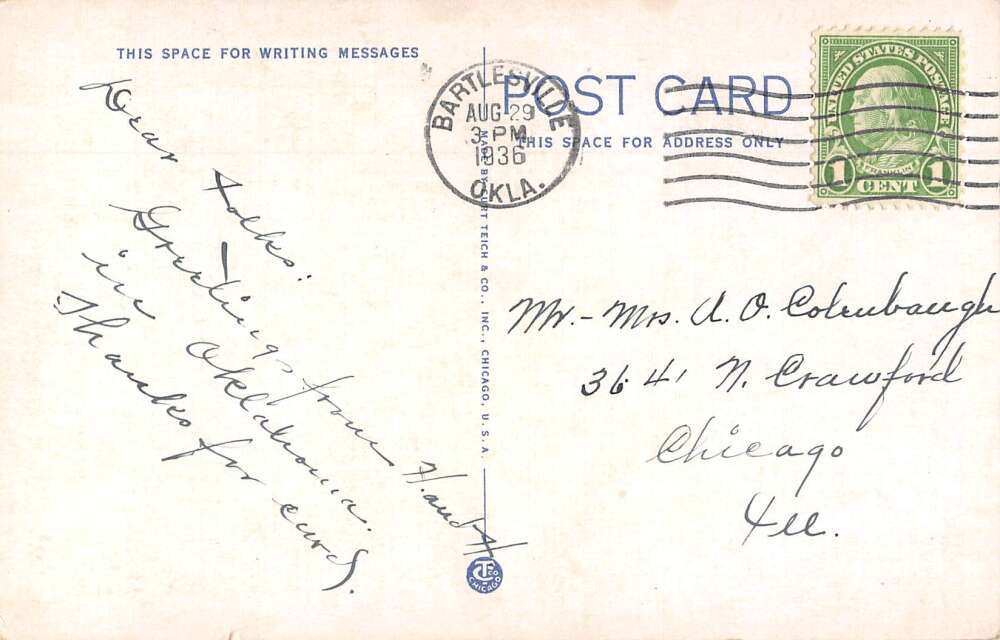 THIS SPACE FOR WRITING MESSAGES
Dear Folks:
Greetings from H. and H
in Oklahoma.
Thanks for card.
MADE BY CURT TEICH & CO., INC., CHICAGO, U.S.A.
CT CO
CHICAGO
POST CARD
THIS SPACE FOR ADDRESS ONLY
BARTLESVILLE
AUG 29
3-PM
1936
OKLA.
UNITED STATES POSTAGE
FRANKLIN
1 CENT 1
Mr. - Mrs. A. O. Colenbaugh
3641 N. Crawford
Chicago
Ill.